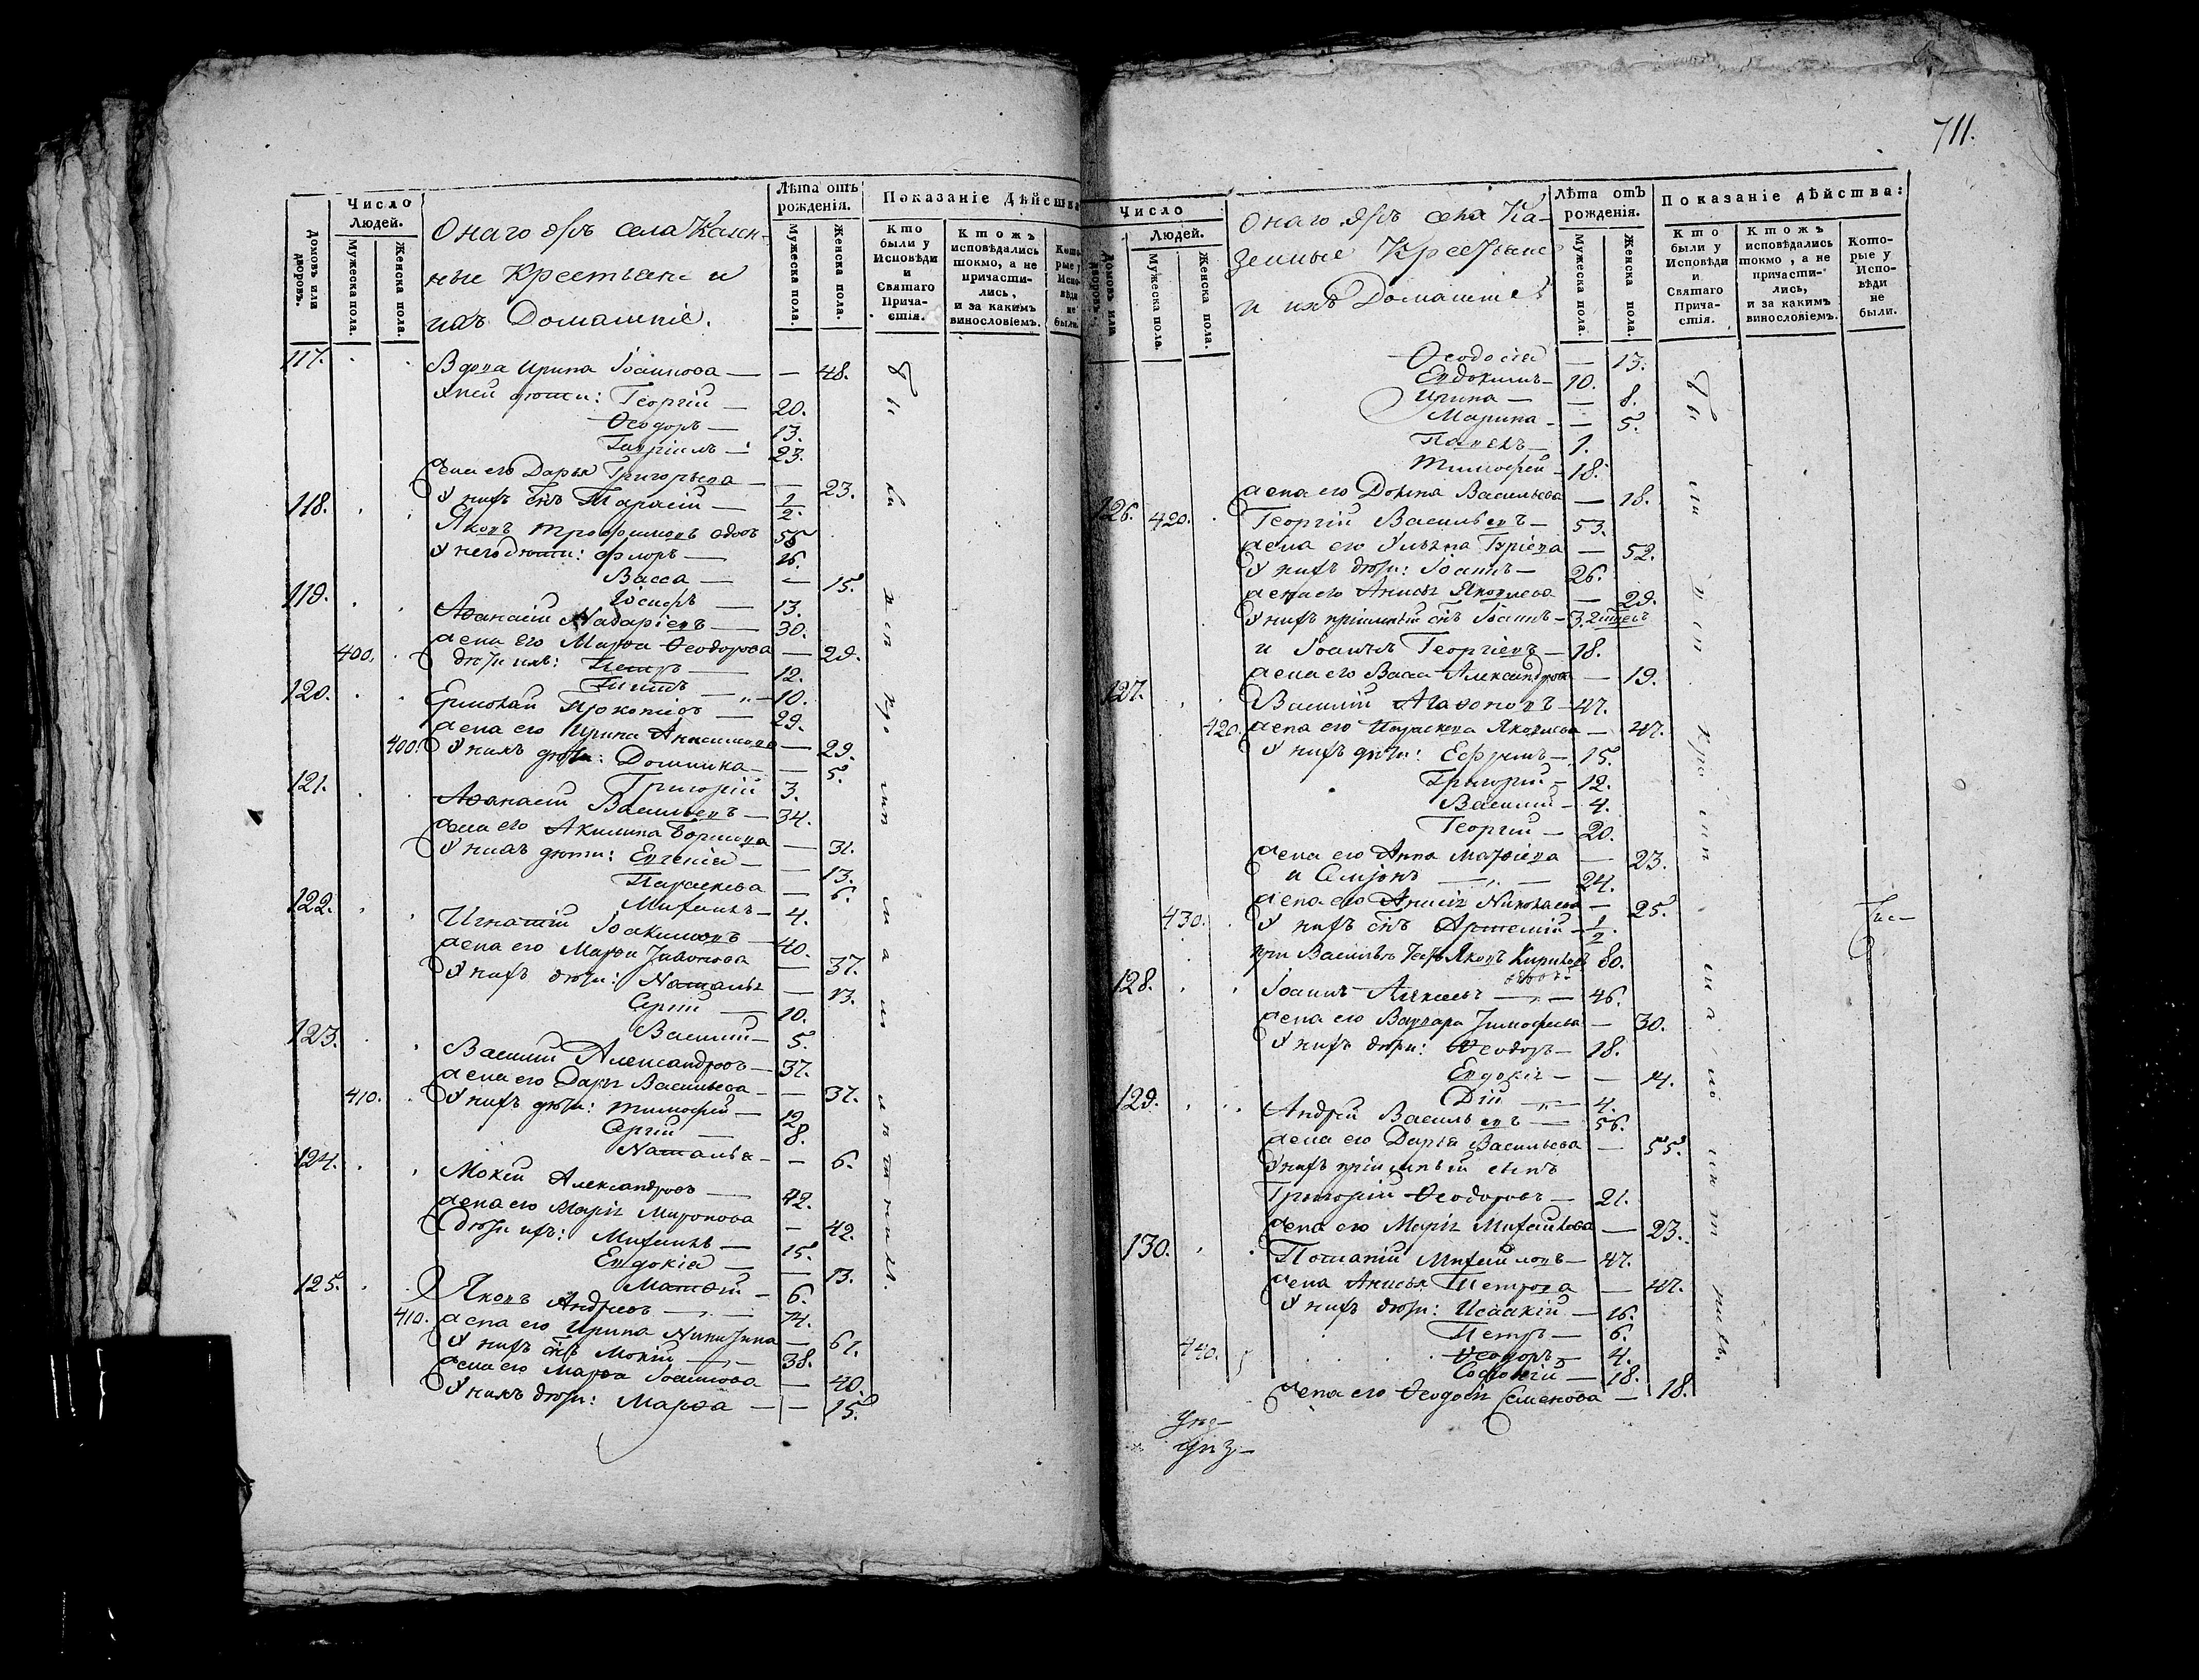 Домовъ или дворовъ.
Число Людей.
Мужеска пола.
Женска пола.
Онаго жъ села Казен-
ные Крестьяне и
ихъ Домашніе.
Лѣта отъ рожденія.
Мужеска пола.
Женска пола.
Показаніе Дѣйства
Кто были у Исповѣди и Святаго Прича-стія.
Ктожъ исповѣдались токмо, а не причасти-лись, и за какимъ винословіемъ.
117. Вдова Ирина Іоаннова — — 48.
У ней дѣти: Георгій — 20.
Ѳеодоръ — 13.
Гавріилъ — 23.
жена его Дарья Григорьева — — 23.
У нихъ снъ Тарасій — 1/2.
118. Яковъ Трофимовъ вдовъ 55
У него дѣти: Флоръ — 16.
Васса — — 15.
Іосифъ — 13.
119. Аѳанасій Назаріевъ — 30.
жена его Марѳа Ѳеодорова — 29.
400. дѣти ихъ: Петръ — 12.
Титъ — 10.
120. Ермолай Прокопіевъ — 29.
жена его Ирина Анисимова — 29.
400. У нихъ дѣти: Домника — — 5.
Григорій 3.
121. Аѳанасій Васильевъ — 34.
жена его Акилина Борисова — 31.
У нихъ дѣти: Евгенія — — 13.
Параскева — 6.
Михаилъ — 4.
122. Игнатій Іоакимовъ — 40.
жена его Марѳа — 37.
У нихъ дѣти: Наталья — 13.
Сергій — 10.
Василій — 5.
123. Василій Александровъ — 37.
жена его Дарья Васильева — — 37.
410. У нихъ дѣти: Тимофей — 12
Сергій — 8.
Наталья — — 6.
124. Мокій Александровъ — 42.
жена его Марія Миронова — 42.
дѣти ихъ: Михаилъ — 15.
Евдокія — — 13.
Матѳій — 6.
125. Яковъ Андреевъ — 74.
410. жена его Ирина Никитина — 61.
У нихъ снъ Мокій — 38.
жена его Марѳа Іоаннова — 40.
У нихъ дѣти: Марѳа — — 15.
711.
Домовъ или дворовъ.
Число Людей.
Мужеска пола.
Женска пола.
Онаго жъ села Ка-
зенные Крестьяне
и ихъ Домашніе
Лѣта отъ рожденія.
Мужеска пола.
Женска пола.
Показаніе дѣйства:
Кто были у Исповѣди и Святаго Прича-стія.
Ктожъ исповѣдались токмо, а не причасти-лись, и за какимъ винословіемъ.
Кото-рые у Испо-вѣди не были.
Ѳеодосія — 13.
Евдокимъ — 10.
Ирина — — 8.
Марина — — 5.
Павелъ — 1.
Тимофей — 18.
жена его Домна Васильева — 18.
126. 420. Георгій Васильевъ — 53.
жена его Ульяна Гуріева — 52.
У нихъ дѣти: Іоаннъ — 26.
жена его Анисья Яковлева — 29.
У нихъ пріимный снъ Іоаннъ — 3.
и Іоаннъ Георгіевъ — 18.
жена его Васса Александрова — 19.
127. Василій Агафоновъ — 47.
420. жена его Параскева Яковлева — 47.
У нихъ дѣти: Ефремъ — 15.
Григорій — 12.
Василій — 4.
Георгій — 20.
жена его Анна — 23.
и Семіонъ — 24.
жена его Анисія Николаева — 25.
430. У нихъ снъ Артемій — 1/2.
при Васильѣ Яковъ Кириловъ вдовъ 80.
128. Іоаннъ Алексеевъ — 46.
жена его Варвара Тимофеева — 30.
У нихъ дѣти: Ѳеодоръ — 18.
Евдокія — — 14.
Дій — 4.
129. Андрей Васильевъ — 56.
жена его Дарья Васильева — 55.
У нихъ пріимный сынъ
Григорій Ѳеодоровъ — 21.
жена его Марія Михайлова — 23.
130. Михайловъ — 47.
жена Анисья Петрова — 47.
У нихъ дѣти: Исаакій — 16.
Петръ — 6.
440. Ѳеодоръ — 4.
18.
жена его Ѳеодосія Семенова — 18.